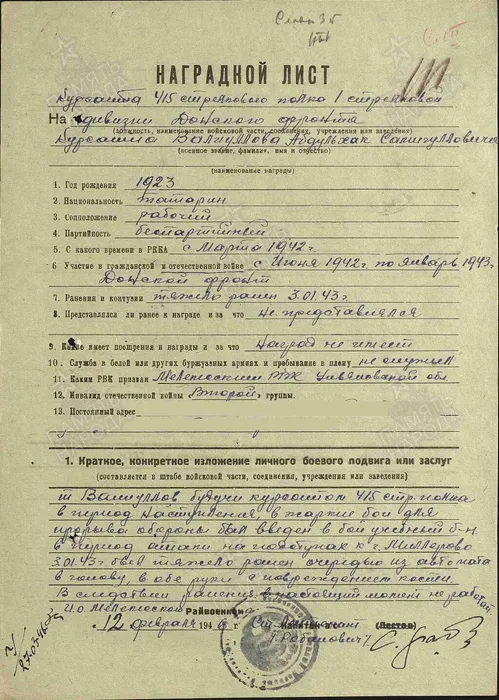 НАГРАДНОЙ ЛИСТ
Курсанта 415 стрелкового полка 1 стрелковой
На дивизии Донского фронта
(должность, наименование войсковой части, соединения, учреждения или заведения)
Курсанта Валиуллова Абдульхак Сапигулловича
(военное звание, фамилия, имя и отчество)
(наименование награды)
1. Год рождения 1923
2. Национальность татарин
3. Соцположение рабочий
4. Партийность беспартийный
5. С какого времени в РККА с Марта 1942 г
6 Участие в гражданской и отечественной войне с Июня 1942 г. по январь 1943 г
Донской фронт
7. Ранения и контузии тяжело ранен 3.01.43 г.
8. Представлялся ли ранее к награде и за что Не представлялся
9. Какие имеет поощрения и награды и за что наград не имеет
10. Служба в белой или других буржуазных армиях и пребывание в плену не служил
11. Каким РВК призван Мелекесским РВК Ульяновской обл
12. Инвалид отечественной войны Второй группы.
13. Постоянный адрес
1. Краткое, конкретное изложение личного боевого подвига или заслуг
(составляется в штабе войсковой части, соединения, учреждения или заведения)
т Валиуллов будучи курсантом 415 стр. полка
в период наступления, в жаркие бои для
прорыва обороны был введен в бой учебный б-н
в период атаки на подступах к г. Миллерово
3.01.43 г был тяжело ранен очередью из автомата
в голову, в обе руки с повреждением кости.
В следствии ранения в настоящий момент не работает
И.о. Мелекесский Райвоенком
12 февраля 194